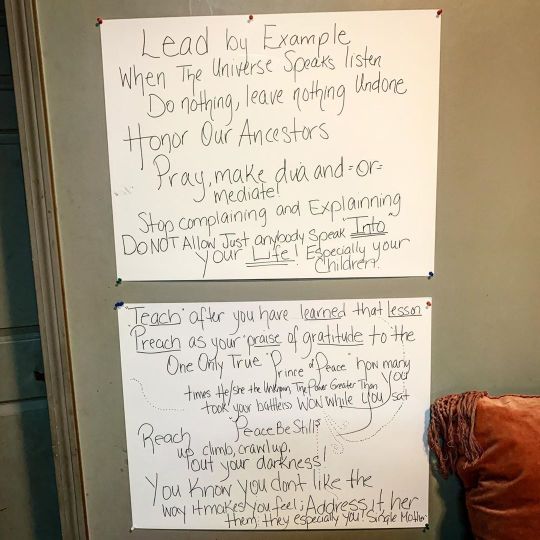 Lead by Example
When The Universe Speaks listen
Do nothing, leave nothing Undone
Honor Our Ancestors
Pray, make dua and =or=
mediate!
Stop complaining and Explainning
DO NOT Allow Just anybody Speak Into
your Life! Especially your
Children!
Teach after you have learned that lesson
Preach as your praise of gratitude to the
One Only True "Prince of Peace" how many
times He/She the Unknown, The Power Greater Than You
took your battle(s) WON while you sat
Peace Be Still
Reach
up climb, crawl up,
out your darkness!
You Know you dont like the
way it makes you feel; Address it her
them, they especially you! Single Mother